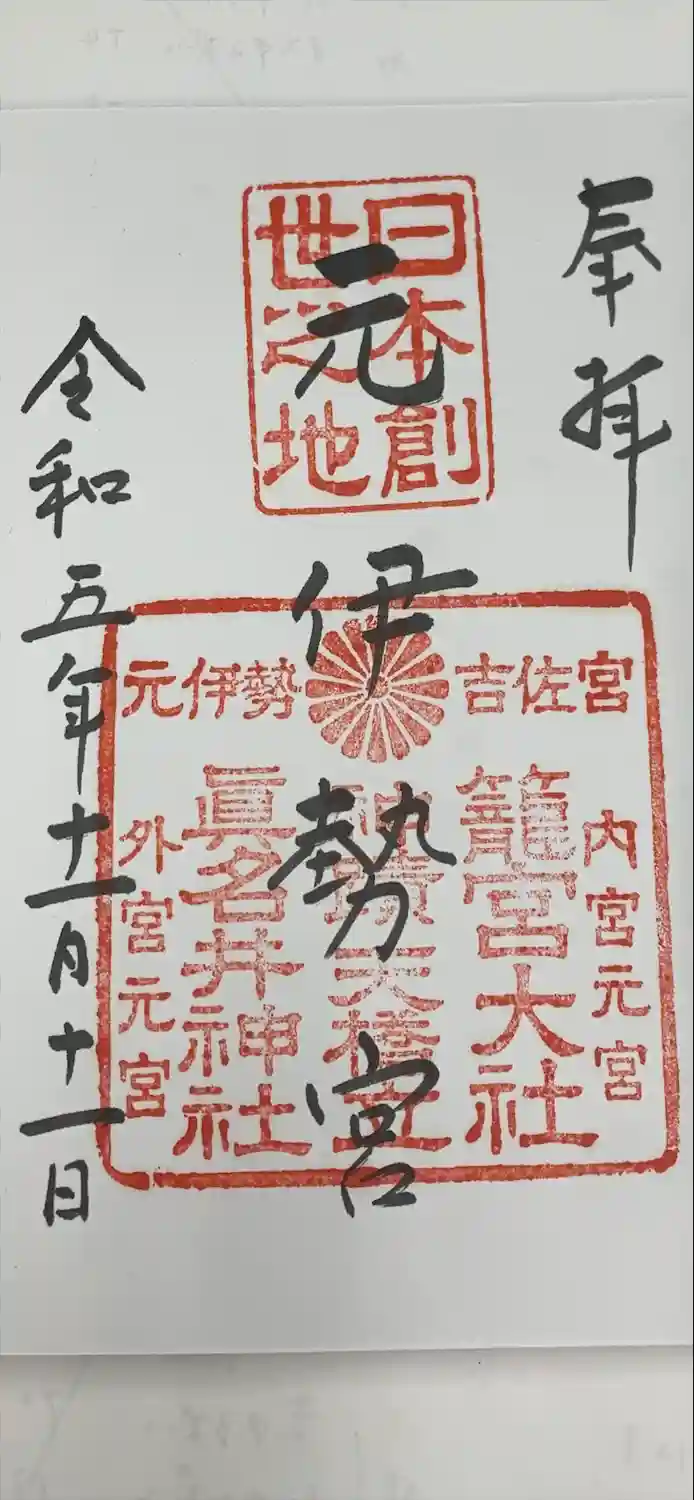 奉拝
元伊勢宮
令和五年十一月十一日
日本創
世之地
吉佐宮
元伊勢
内宮元宮
籠宮大社
天橋立
眞名井神社
外宮元宮